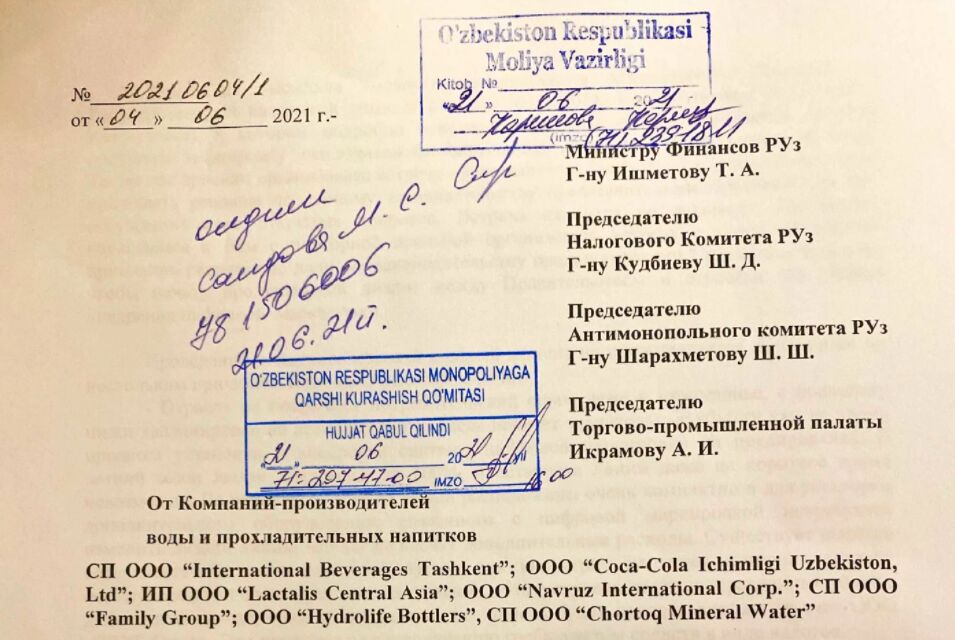 № 20210604/1
от «04» 06 2021 г.-
O'zbekiston Respublikasi
Moliya Vazirligi
Kitob №
«21» 06 2021
(imzo) (71) 239-18
Министру Финансов РУз
Г-ну Ишметову Т. А.
Председателю
Налогового Комитета РУз
Г-ну Кудбиеву Ш. Д.
Председателю
Антимонопольного комитета РУз
Г-ну Шарахметову Ш. Ш.
Председателю
Торгово-промышленной палаты
Икрамову А. И.
олдим
Саидова М. С.
781506006
21.06.21й.
O'ZBEKISTON RESPUBLIKASI MONOPOLIYAGA
QARSHI KURASHISH QO'MITASI
HUJJAT QABUL QILINDI
«21» 06 2021
71-207-47-00 IMZO 16:00
От Компаний-производителей
воды и прохладительных напитков
СП ООО “International Beverages Tashkent”; ООО “Coca-Cola Ichimligi Uzbekiston,
Ltd”; ИП ООО “Lactalis Central Asia”; ООО “Navruz International Corp.”; СП ООО
“Family Group”; ООО “Hydrolife Bottlers”, СП ООО “Chortoq Mineral Water”